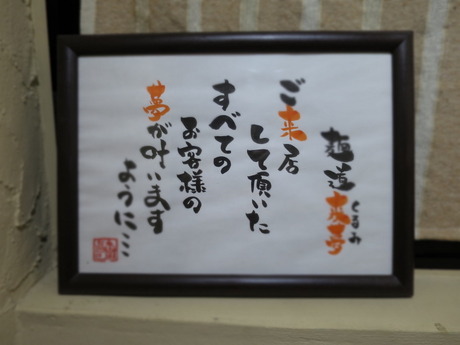 麺道 来夢
くるみ
ご来店
して頂いた
すべての
お客様の
夢が叶います
ように…